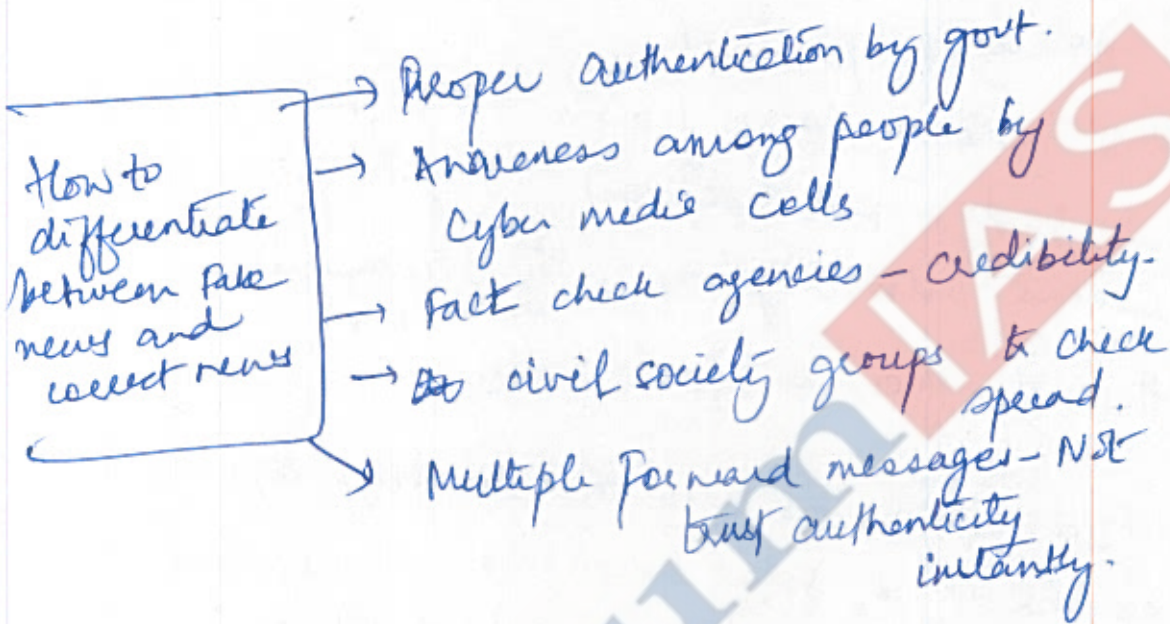 How to
differentiate
between Fake
news and
correct news
→ Proper authentication by govt.
→ Awareness among people by
Cyber media cells
→ Fact check agencies - credibility.
→ civil society groups to check
spread.
→ Multiple Forward messages - Not
trust authenticity
instantly.
um IAS